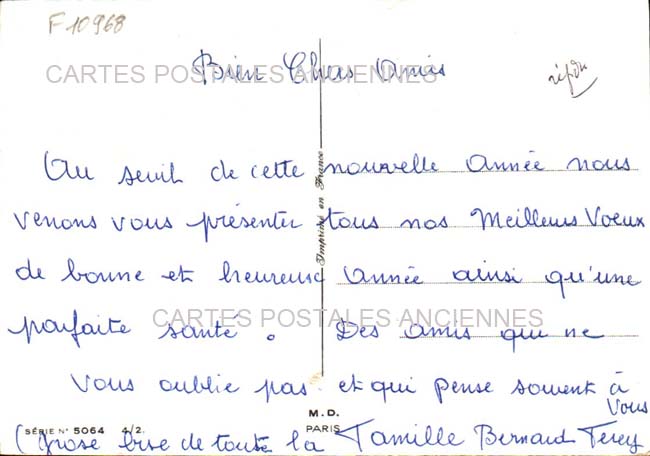 F 10968
Bien Chers Amis
répdu
CARTES POSTALES ANCIENNES
Au seuil de cette nouvelle Année nous
venons vous présenter tous nos Meilleurs Voeux
de bonne et heureuse Année ainsi qu'une
parfaite santé. Des amis qui ne
CARTES POSTALES ANCIENNES
vous oublie pas et qui pense souvent à
vous
Imprimé en France
M.D.
PARIS
SÉRIE N° 5064 4/2
(Grose bise de toute la Famille Bernard